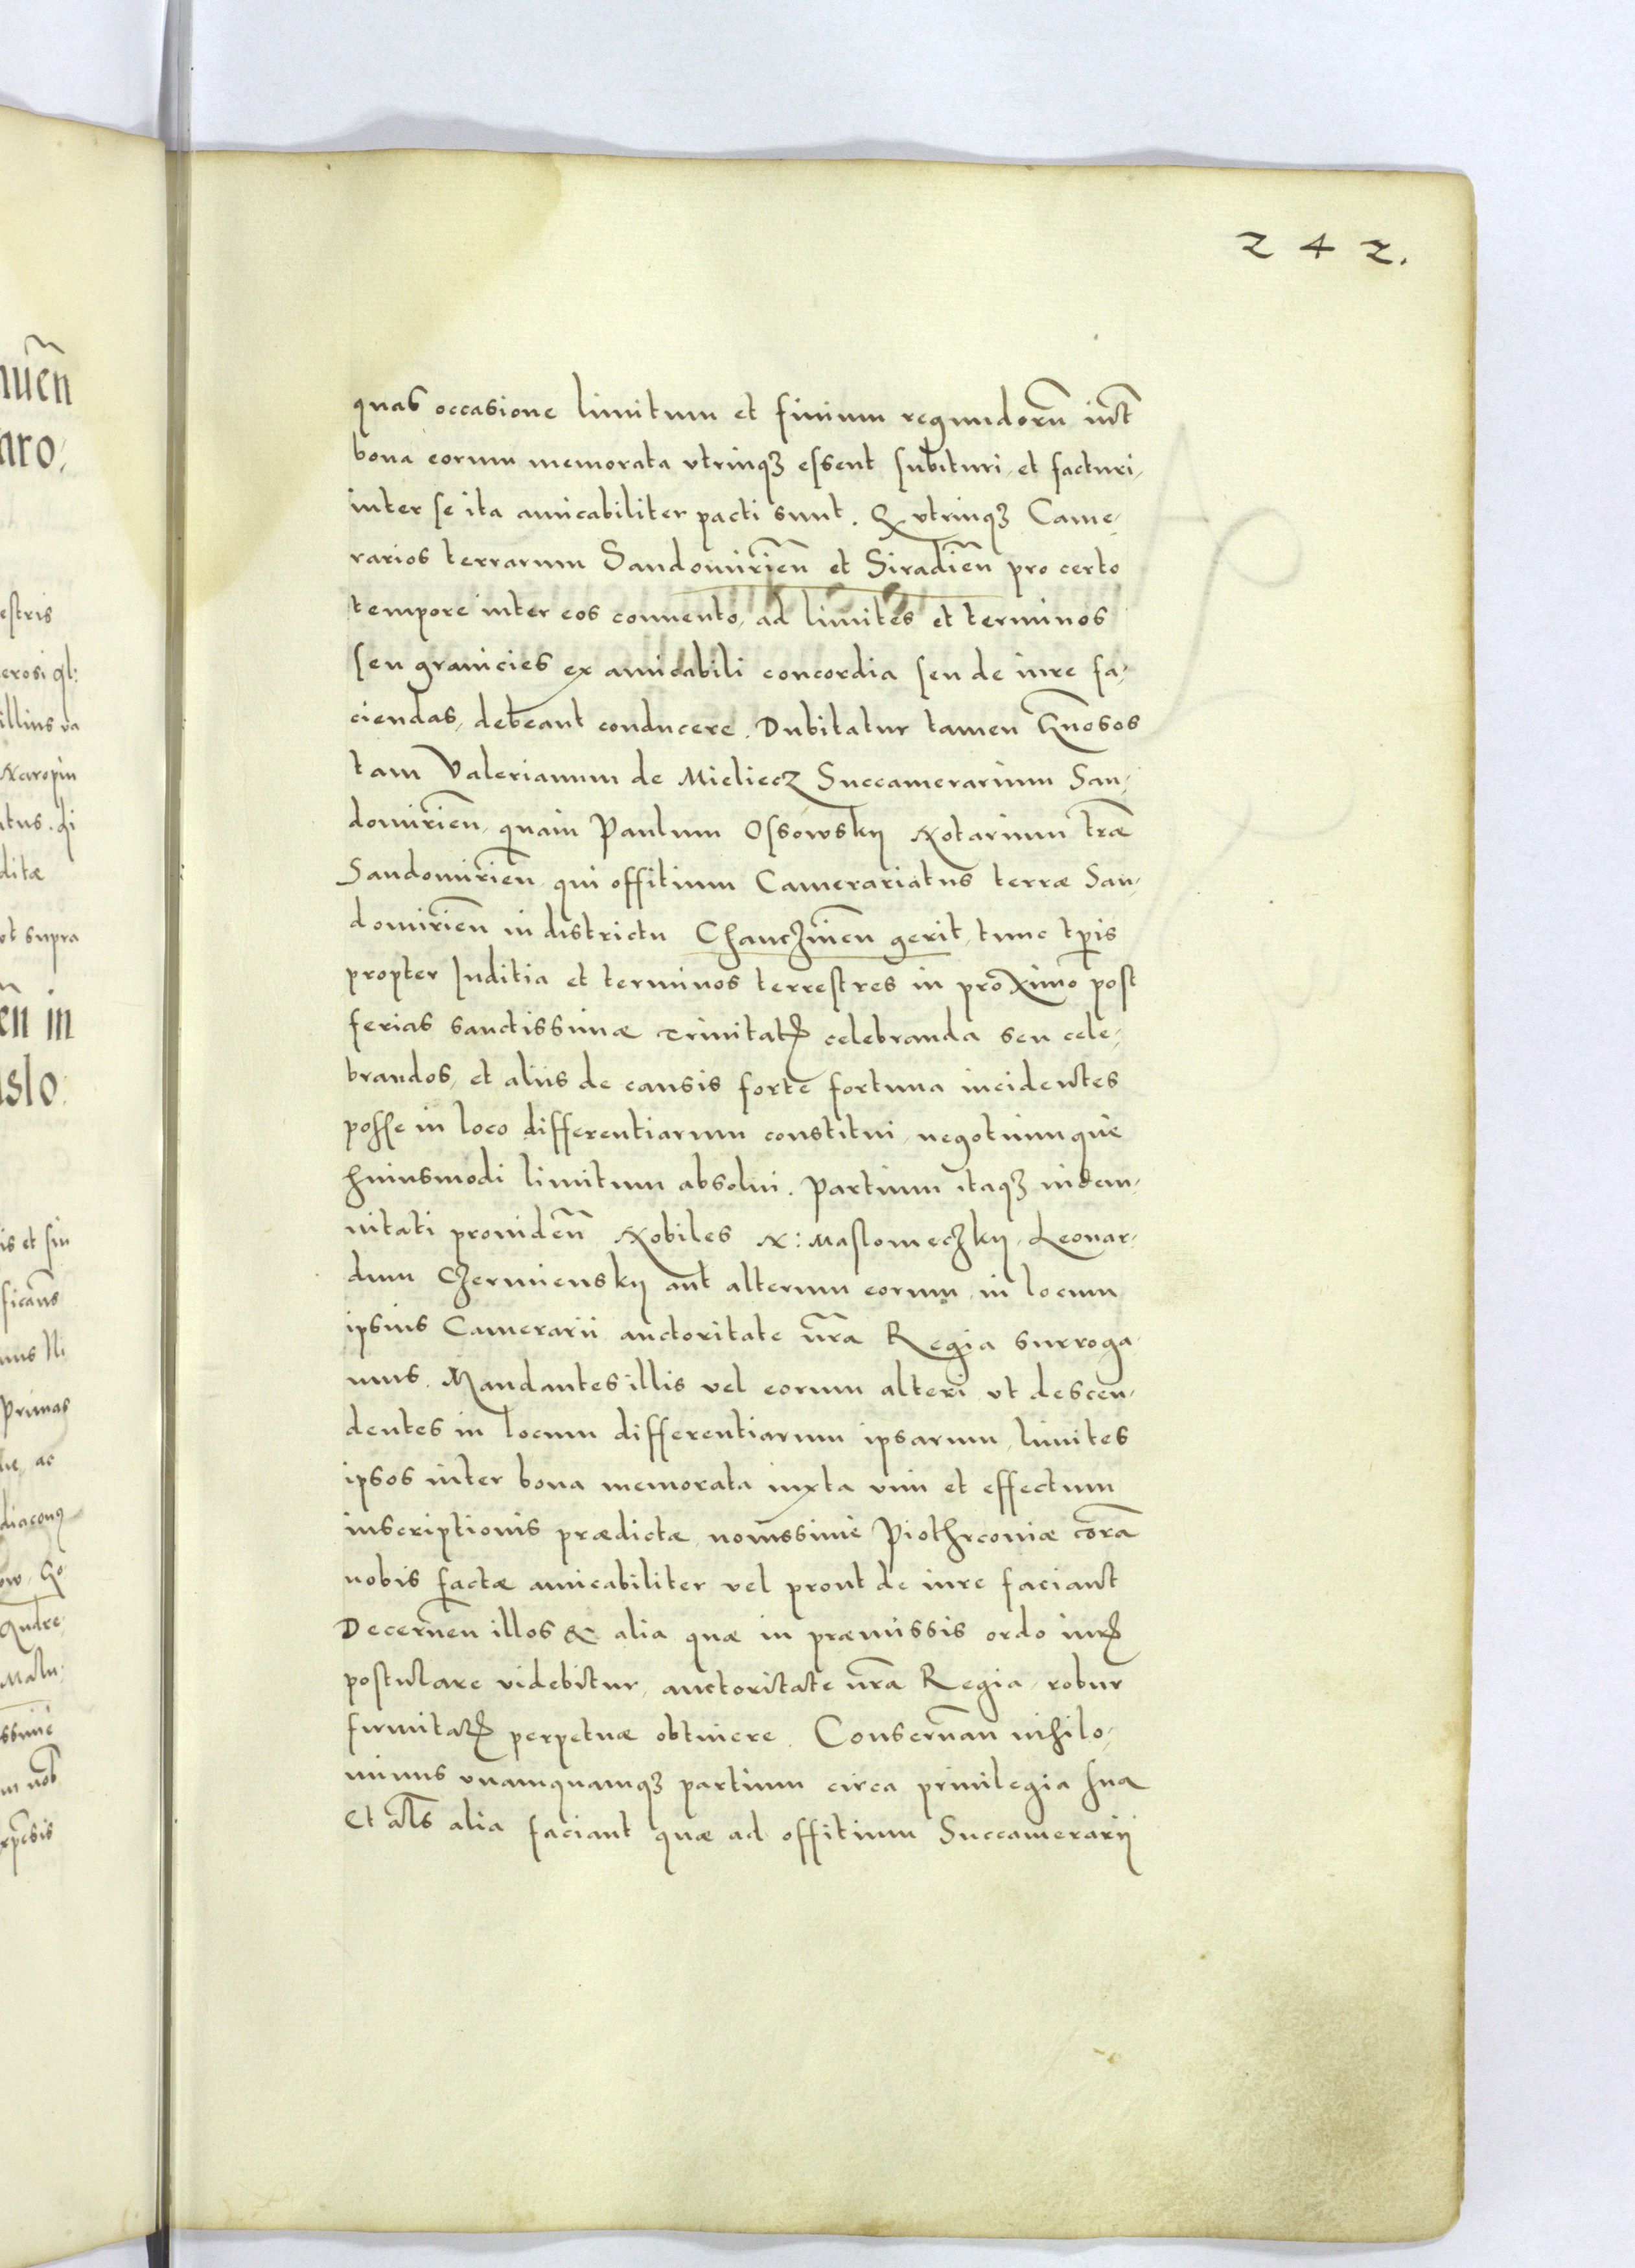 242.
quas occasione limitum et finium regundorũ inct̃
bona eorum memorata vtrinqꝫ essent subituri, et facturi,
inter se ita amicabiliter pacti sunt. Q vtrinqꝫ Came,
rarios terrarum Sandomirieñ et Siradieñ pro certo
tempore inter eos conuento, ad limites et terminos
seu granicies ex amicabili concordia seu de iure fa,
ciendas, debeant conducere. Dubitatur tamen Gñosos
tam Valerianum de Mieliecz Succamerarium San,
domirieñ, quam Paulum Ossowskij Notarium trãe
Sandomirieñ qui offitium Camerariatus terræ San,
domirieñ in districtu Chancziñeñ gerit, tunc tp̃is
propter Iuditia et terminos terrestres in proximo post
ferias sanctissimæ Trinitatꝭ celebranda seu cele,
brandos, et alijs de causis forte fortuna incidentes
posse in loco differentiarum constitui, negotiumque
huiusmodi limitum absolui. Partium itaqꝫ indem,
nitati prouideñ Nobiles N: Maslomeczkij, Leonar,
dum Czermienskij aut alterum eorum, in locum
ipsius Camerarii auctoritate nr̃a Regia surroga
mus. Mandantes illis vel eorum alteri vt descen,
dentes in locum differentiarum ipsarum, limites
ipsos inter bona memorata iuxta vim et effectum
inscriptionis prædictæ nouissime Piothrconiæ corã
nobis factæ amicabiliter vel prout de iure faciant
Decerneñ illos & alia quæ in præmissis ordo iurꝭ
postulare videbitur, auctoritate nr̃a Regia, robur
firmitatꝭ perpetuæ obtinere. Conseruañ nihilo,
minus vnamquamqꝫ partium circa priuilegia sua
Et al̃s alia faciant quæ ad offitium Succamerarij